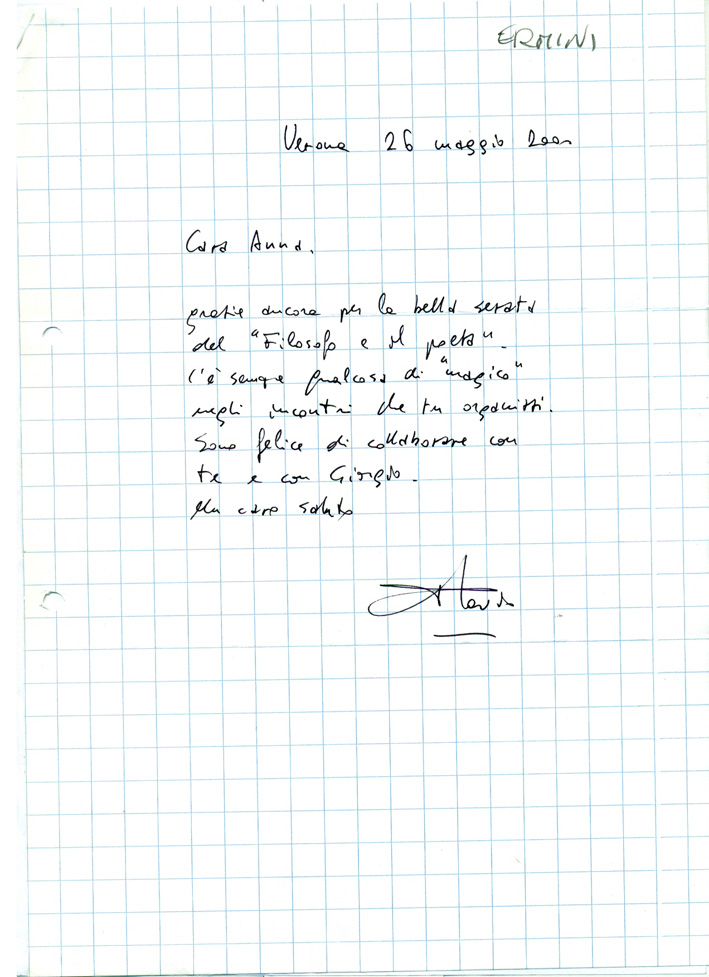 ERMINI
Verona 26 maggio 2001
Cara Anna.
grazie ancora per la bella serata
del "Filosofo e il poeta".
C'è sempre qualcosa di "magico"
negli incontri che tu organizzi.
Sono felice di collaborare con
te e con Giorgio.
Un caro saluto
Flavio